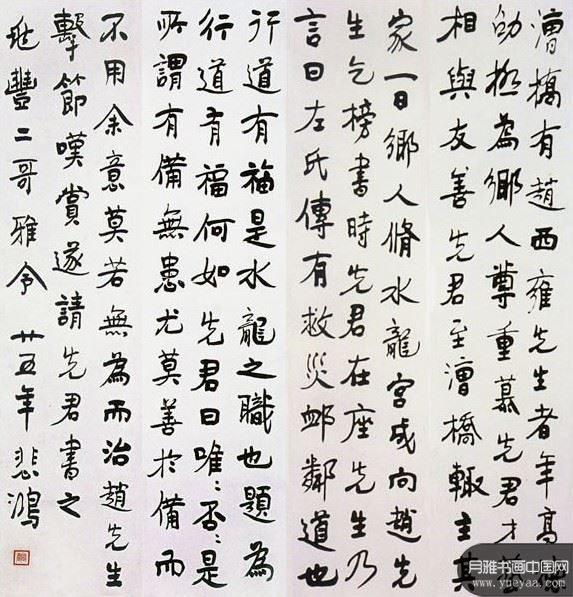 漕橋有趙西雍先生者年高德
劭極為鄉人尊重慕先君才藝
相與友善先君至漕橋輒主其
家一日鄉人脩水龍宮成向趙先
生乞榜書時先君在座先生乃
言曰左氏傳有救災卹鄰道也
行道有福是水龍之職也題為
行道有福何如先君曰唯〻否〻是
所謂有備無患尤莫善於備而
不用余意莫若無為而治趙先生
擊節嘆賞遂請先君書之
豐二哥雅令 廿五年悲鴻
月雅书画中国网
www.yueyaa.com